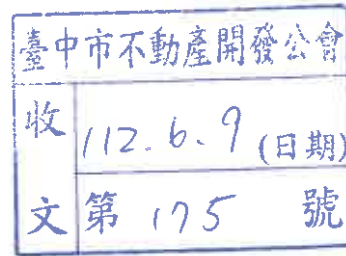 臺中市不動產開發公會
收 112.6.9 (日期)
文 第 175 號